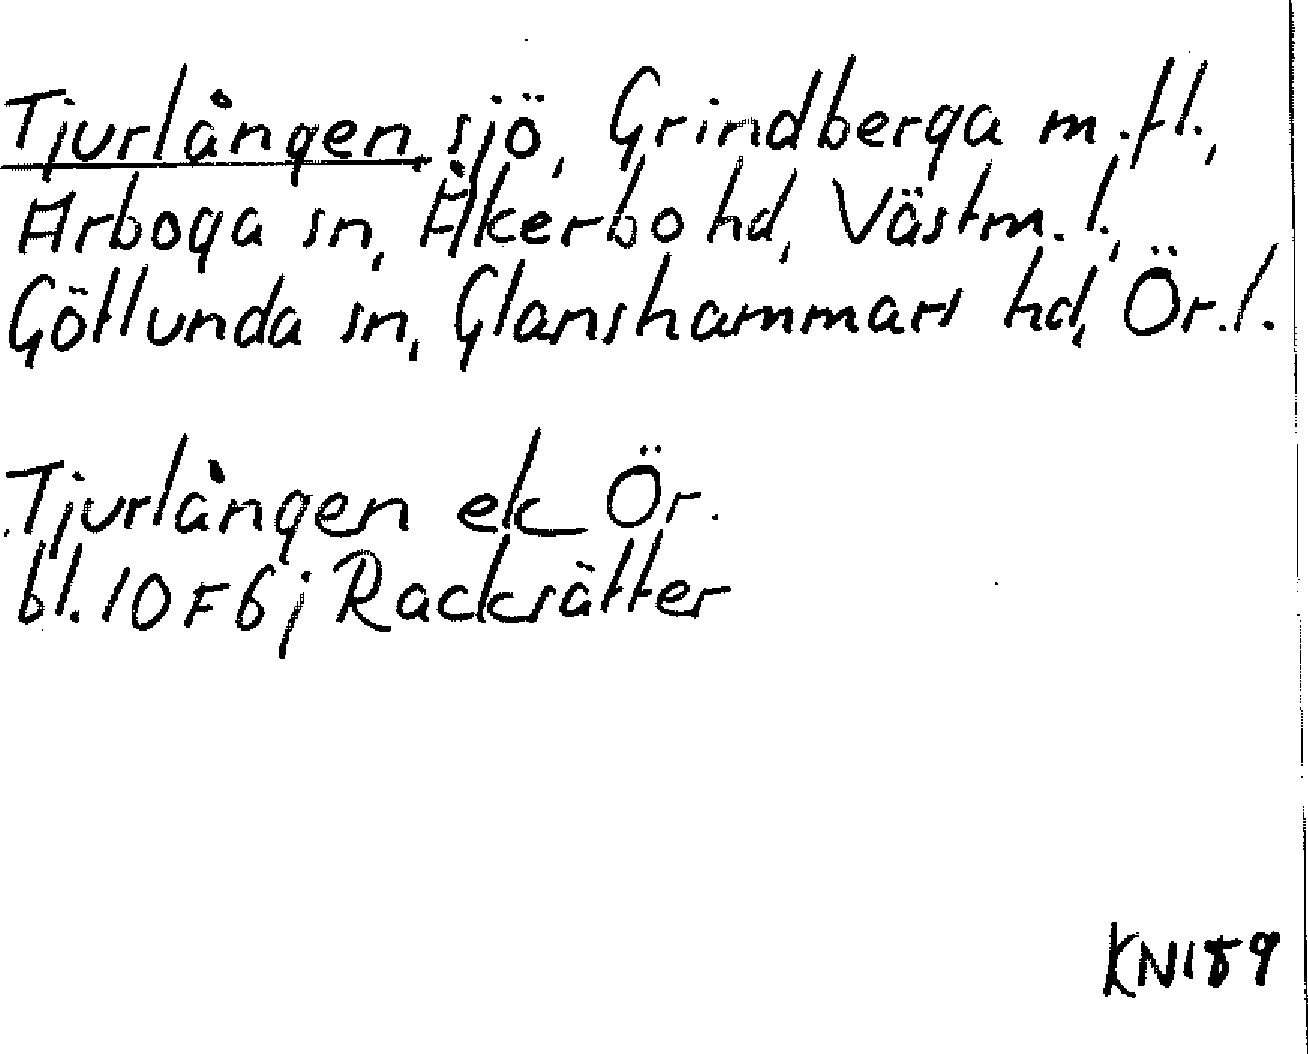 Tjurlången, sjö, Grindberga m.fl.,
Arboga sn, Åkerbo hd, Västm. l.,
Götlunda sn, Glanshammars hd, Ör. l.

Tjurlången ek Ör.
bl. 10F6j Racksätter

KN189